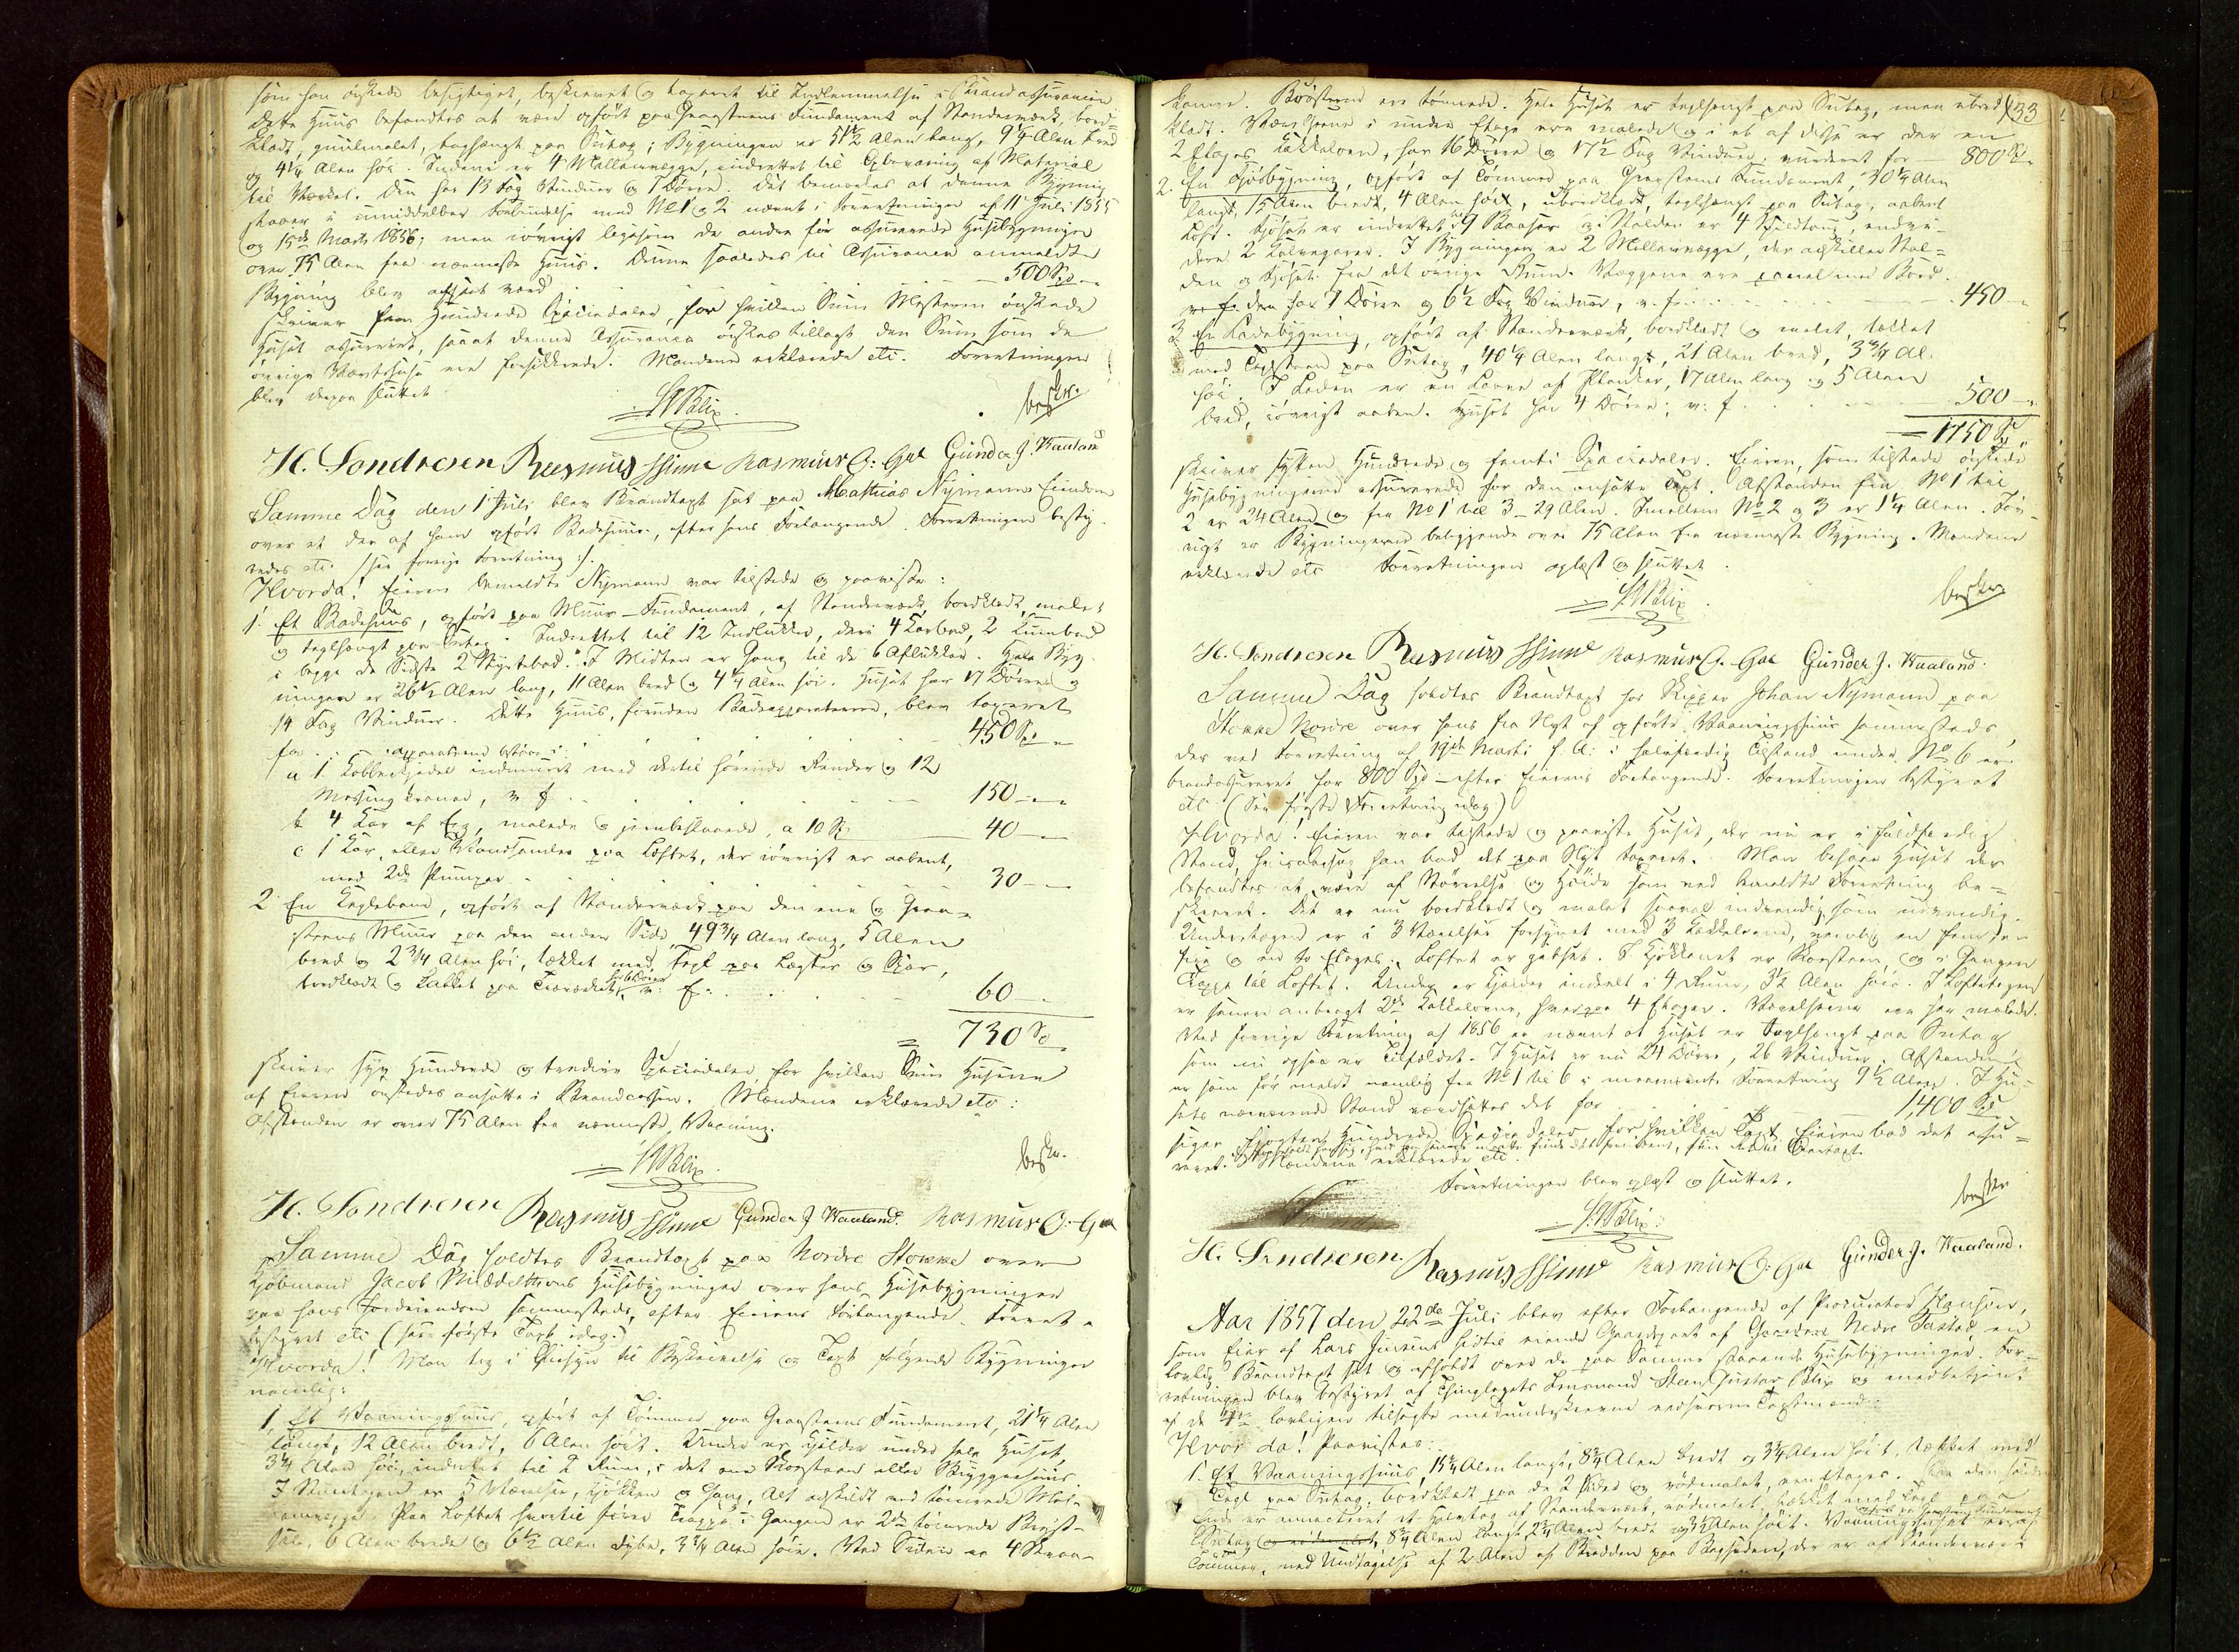 som han ønskede besigtiget, beskrevet og taxeret til Indlemmelse i Brandassurancen
Dette Huus befandtes at være opført paa Graasteens Fundament af Standerværk, bord-
klædt, guulmalet, taghængt paa Sutag; Bygningen er 51 1/2 Alen lang, 9 1/4 Alen bred
og 4 1/4 Alen høi. Indeni er 4 Mellemvægge, indrettet til Opbevaring af Material
til Værket. Den har 13 Fag Vinduer og 7 Døre. Det bemærkes at denne Bygning
staaer i umiddelbar Forbindelse med No 1 og 2 nævnt i Forretninger af 11 Juli 1855
og 15de Marts 1856; men iøvrigt ligesom de andre før assurerede Huusbygninger
over 75 Alen fra nærmeste Huus. Denne saaledes til Assurance anmeldte
Bygning blev ansat værd 500 Spd
skriver fem Hundrede Speciedaler, for hvilken Sum Mesteren ønskede
Huset assureret, saaat denne Assurance ønskes tillagt den Sum som de
øvrige Værkshuse ere forsikkrede. Mændene erklærede etc. Forretningen
blev derpaa sluttet
St Blix beskr.
H. Sondresen Rasmus Ssime Rasmus O. Gae Gunder J. Waaland
Samme Dag den 1 Juli blev Brandtaxt sat paa Mathias Nymanns Eiendom
over et der af ham opført Badehuus, efter hans Forlangende. Forretningen besty-
redes etc. (see forrige Forretning :/.
Hvorda! Eieren bemeldte Nymann var tilstede og paaviste:
1. Et Badehuus, opført paa Muur-Fundament, af Standerværk, bordklædt, malet
og teglhængt paa Sutag. Indrettet til 12 Indlukker, deri 4 Karbad, 2 Kuurbad
i begge de Sidste 2 Styrtebad. I Midten er Gang til de 6 Aflukker. Hele Byg-
ningen er 26 1/2 Alen lang, 11 Alen bred og 4 1/4 Alen høi. Huset har 17 Døre og
14 Fag Vinduer. Dette Huus, foruden Badeapparaterne, blev taxeret
for 450 Spd
Apparaterne ere:
a 1 Kobberkjedel indmuret med dertil hørende Render og 12
Messing kraner, v. f. 150
b 4 Kar af Eg, malede og jernbeslaaede, a 10 Spd 40
c 1 Kar, eller Vandbeholder paa Loftet, der iøvrigt er aabent,
med 2de Pumper 30
2 En Keglebane, opført af Standerværk paa den ene og Graa-
steens Muur paa den anden Side 49 3/4 Alen lang, 5 Alen
bred og 2 3/4 Alen høi, tækket med Tegl paa Lægter og Spær,
bordklædt og kalket paa Træværket, v. f. 60
= 730 Spd
skriver syv Hundrede og tredive Speciedaler for hvilken Sum Husene
af Eieren ønskedes ansatte i Brandcassen. Mændene erklærede etc:
Afstanden er over 75 Alen fra nærmeste Bygning.
St Blix beskr.
H. Sondresen Rasmus Ssime Gunder J Waaland. Rasmus O. Gae
Samme Dag holdtes Brandtaxt paa Nordre Stokke over
Kjøbmand Jacob Middelthons Husebygninger over hans Husebygninger
paa hans Jordeiendom sammesteds, efter Eierens Forlangende. Forret-
bestyret etc (see første Taxt idag.)
Hvorda! Man tog i Øiesyn til Beskrivelse og Taxt følgende Bygninger
nemlig:
1. Et Vaaningshuus, opført af Tømmer, paa Graasteens Fundament, 21 1/4 Alen
langt, 12 Alen bredt, 6 Alen høit. Under er Kjelder under hele Huset,
3 1/4 Alen høi, indrettet til 2 Rum, i det ene Skorsteen eller Bryggerhuus.
I Stueetagen er 5 Værelser, Kjøkken og Gang, Alt adskildt med tømrede Mel-
lemvægge. Paa Loftet hvortil fører Trappe i Gangen er 2de tømrede Bryst-
sale, 6 Alen brede og 6 1/2 Alen dybe, 3 3/4 Alen høie. Ved Siden er 4 Skraa-
33
kamre. Brøstene ere tømrede. Hele Huset er teglhængt paa Sutag, men ubord-
klædt. Værelserne i under Etage ere malede og i et af disse er der en
2 Etages Kakkelovn, har 16 Døre og 17 1/2 Fag Vinduer; vurderet for 800 Spd
2. En Fjøsbygning, opført af Tømmer paa Graasteens Fundament, 30 1/4 Alen
langt, 15 Alen bredt, 4 Alen høit, ubordklædt, teglhængt paa Sutag, aabent
Loft. Fjøset er indrettet til 9 Baaser og i Stalden er 4 Spiltoug, endvi-
dere 2 Kalvegarer. I Bygningen er 2 Mellemvægge, der adskiller Stal-
den og Fjøset fra det øvrige Rum. Væggene ere panel med Bord.
v. f. den har 7 Døre og 6 1/2 Fag Vinduer, v. f. 450
3 En Ladebygning, opført af Standerværk, bordklædt og malet, tækket
med Teglsteen paa Sutag, 40 1/4 Alen langt, 21 Alen bred, 3 3/4 Al.
høi. I Laden er en Laave af Planker, 17 Alen lang og 5 Alen
bred, iøvrigt aaben. Huset har 4 Døre; v: f 500
= 1750 Spd
skriver sytten Hundrede og femti Speciedaler. Eieren, som tilstede ønskede
Husebygningerne assurerede for den ansatte Taxt. Afstanden fra No 1 til
2 er 24 Alen og fra No 1 til 3 - 29 Alen. Imellem No 2 og 3 er 1 1/4 Alen. Iøv-
rigt er Bygningerne beliggende over 75 Alen fra nærmeste Bygning. Mændene
erklærede etc Forretningen oplæst og sluttet.
St Blix beskr
H. Sondresen Rasmus Ssime Rasmus O. Gae Gunder J. Waaland.
Samme Dag holdtes Brandtaxt hos Skipper Johan Nymann paa
Stokke Nordre over hans fra Nyt af opførte Vaaningshuus sammesteds,
der ved Forretning af 19de Marts f. A. i halvferdig Tilstand under No 6 er
brandassureret for 800 Spd - efter Eierens Forlangende. Forretningen bestyret
etc. (See første Forretning idag)
Hvorda! Eieren var tilstede og paaviste Huset, der nu er i fuldferdig
Stand, hvisaarsag han bad det paa Nyt taxeret. Man besaae Huset der
befandtes at være af Størrelse og Høide som ved bemeldte Forretning be-
skrevet. Det er nu bordklædt og malet saavel indvendig som udvendig.
Underetagen er i 3 Værelser forsynet med 3 Kakkelovne, nemlig en fem, en
fire og en to Etages. Loftet er gibset. I Kjøkkenet er Skorsteen, og i Gangen
Trappe til Loftet. Under er Kjelder inddelt i 4 Rum, 3 1/2 Alen høie. I Loftetagen
er senere anbragt 2de Kakkelovne, hver paa 4 Etager. Værelserne ere her malede.
Ved forrige Forretning af 1856 er nævnt at Huset er teglhængt paa Sutag
som nu ogsaa er Tilfældet. I Huset er nu 24 Døre, 26 Vinduer. Afstanden
er som før meldt nemlig fra No 1 til 6 i meernævnte Forretning 9 1/2 Alen. I Hu-
sets nærværende Stand værdsattes det for 1,400 Spd
siger fjorten Hundrede Speciedaler for hvilken Taxt Eieren bad det assu-
reret. Mændene erklærede etc.
Forretningen blev oplæst og sluttet.
St Blix beskr
H. Sondresen. Rasmus Ssime Rasmus O. Gae Gunder J. Waaland.
Aar 1857 den 22de Juli blev efter Forlangende af Procurator Hansen,
som Eier af Lars Jensens hidtil eiende Gaardpart af Gaarden Nedre Tasted, en
lovlig Brandtaxt sat og afholdt over de paa Samme staaende Husebygninger. For-
retningen blev bestyret af Thinglagets Lensmand Steen Gustav Blix og medbetjent
af de 4re lovligen tilsagte medunderskrevne edsvorne Taxtmænd.
Hvor da! Paavistes:
1. Et Vaaningshuus, 15 3/4 Alen langt, 8 3/4 Alen bredt og 3 3/4 Alen høit, tækket med
Tegl paa Sutag, bordklædt paa de 2 Sider og rødmalet, een Etages. Paa den søndre
Ende er anmerket et Halvtag af Standerværk, rødmalet, tækket med Tegl paa
Sutag, 8 3/4 Alen langt, 2 3/4 Alen bredt og 3 1/2 Alen høit. Vaaningshuset er af
Tømmer, med Undtagelse af 2 Alen af Bredden paa Bagsiden, der er af Standerværk